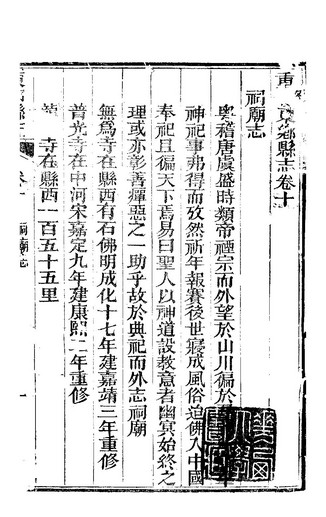 鄉縣志卷十
祠廟志
粵稽唐虞盛時類帝禋宗而外望於山川徧於
神祀事弗得而攷然祈年報賽後世寖成風俗迫佛入中國
奉祀且徧天下焉易曰聖人以神道設教意者幽冥始終之
理或亦彰善癉惡之一助乎故於典祀而外志祠廟
無為寺在縣西有石佛明成化十七年建嘉靖三年重修
普光寺在中河宋嘉定九年建康熙二年重修
寺在縣西一百五十五里
卷十
祠廟志
一